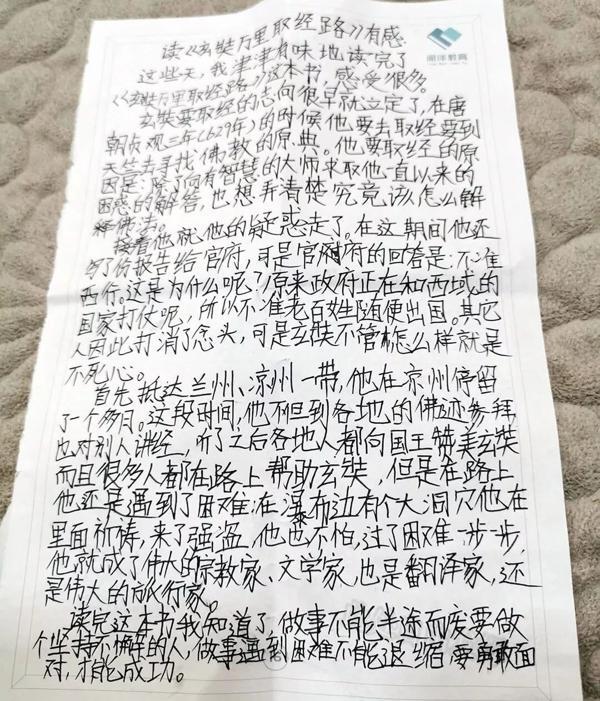 读《玄奘万里取经路》有感
这些天，我津津有味地读完了
《玄奘万里取经路》这本书，感受很多。
玄奘要取经的志向很早就立定了，在唐
朝贞观三年（629年）的时候他要去取经要到
天竺去寻找佛教的原典。他要取经的原
因是：除了向有智慧的大师求取他一直以来的
困惑的解答，也想弄清楚究竟该怎么解
释佛法。
接着他就他的疑惑走了。在这期间他还
写了份报告给官府，可是官府的回答是：不准
西行。这是为什么呢？原来政府正在和西域的
国家打仗呢，所以不准老百姓随便出国。其它
人因此打消了念头，可是玄奘不管怎么样就是
不死心。
首先抵达兰州、凉州一带，他在凉州停留
了一个多月。这段时间，他不但到各地的佛迹参拜
也对别人讲经，听了后各地人都向国王赞美玄奘
而且很多人都在路上帮助玄奘，但是在路上
他还是遇到了困难：在瀑布边有个大洞穴他在
里面祈祷，来了强盗，他也不怕，过了困难一步一步，
他就成了伟大的宗教家、文学家，也是翻译家，还
是伟大的旅行家。
读完这本书我知道了，做事不能半途而废要做
个坚持不懈的人，做事遇到困难不能退缩，要勇敢面
对，才能成功。